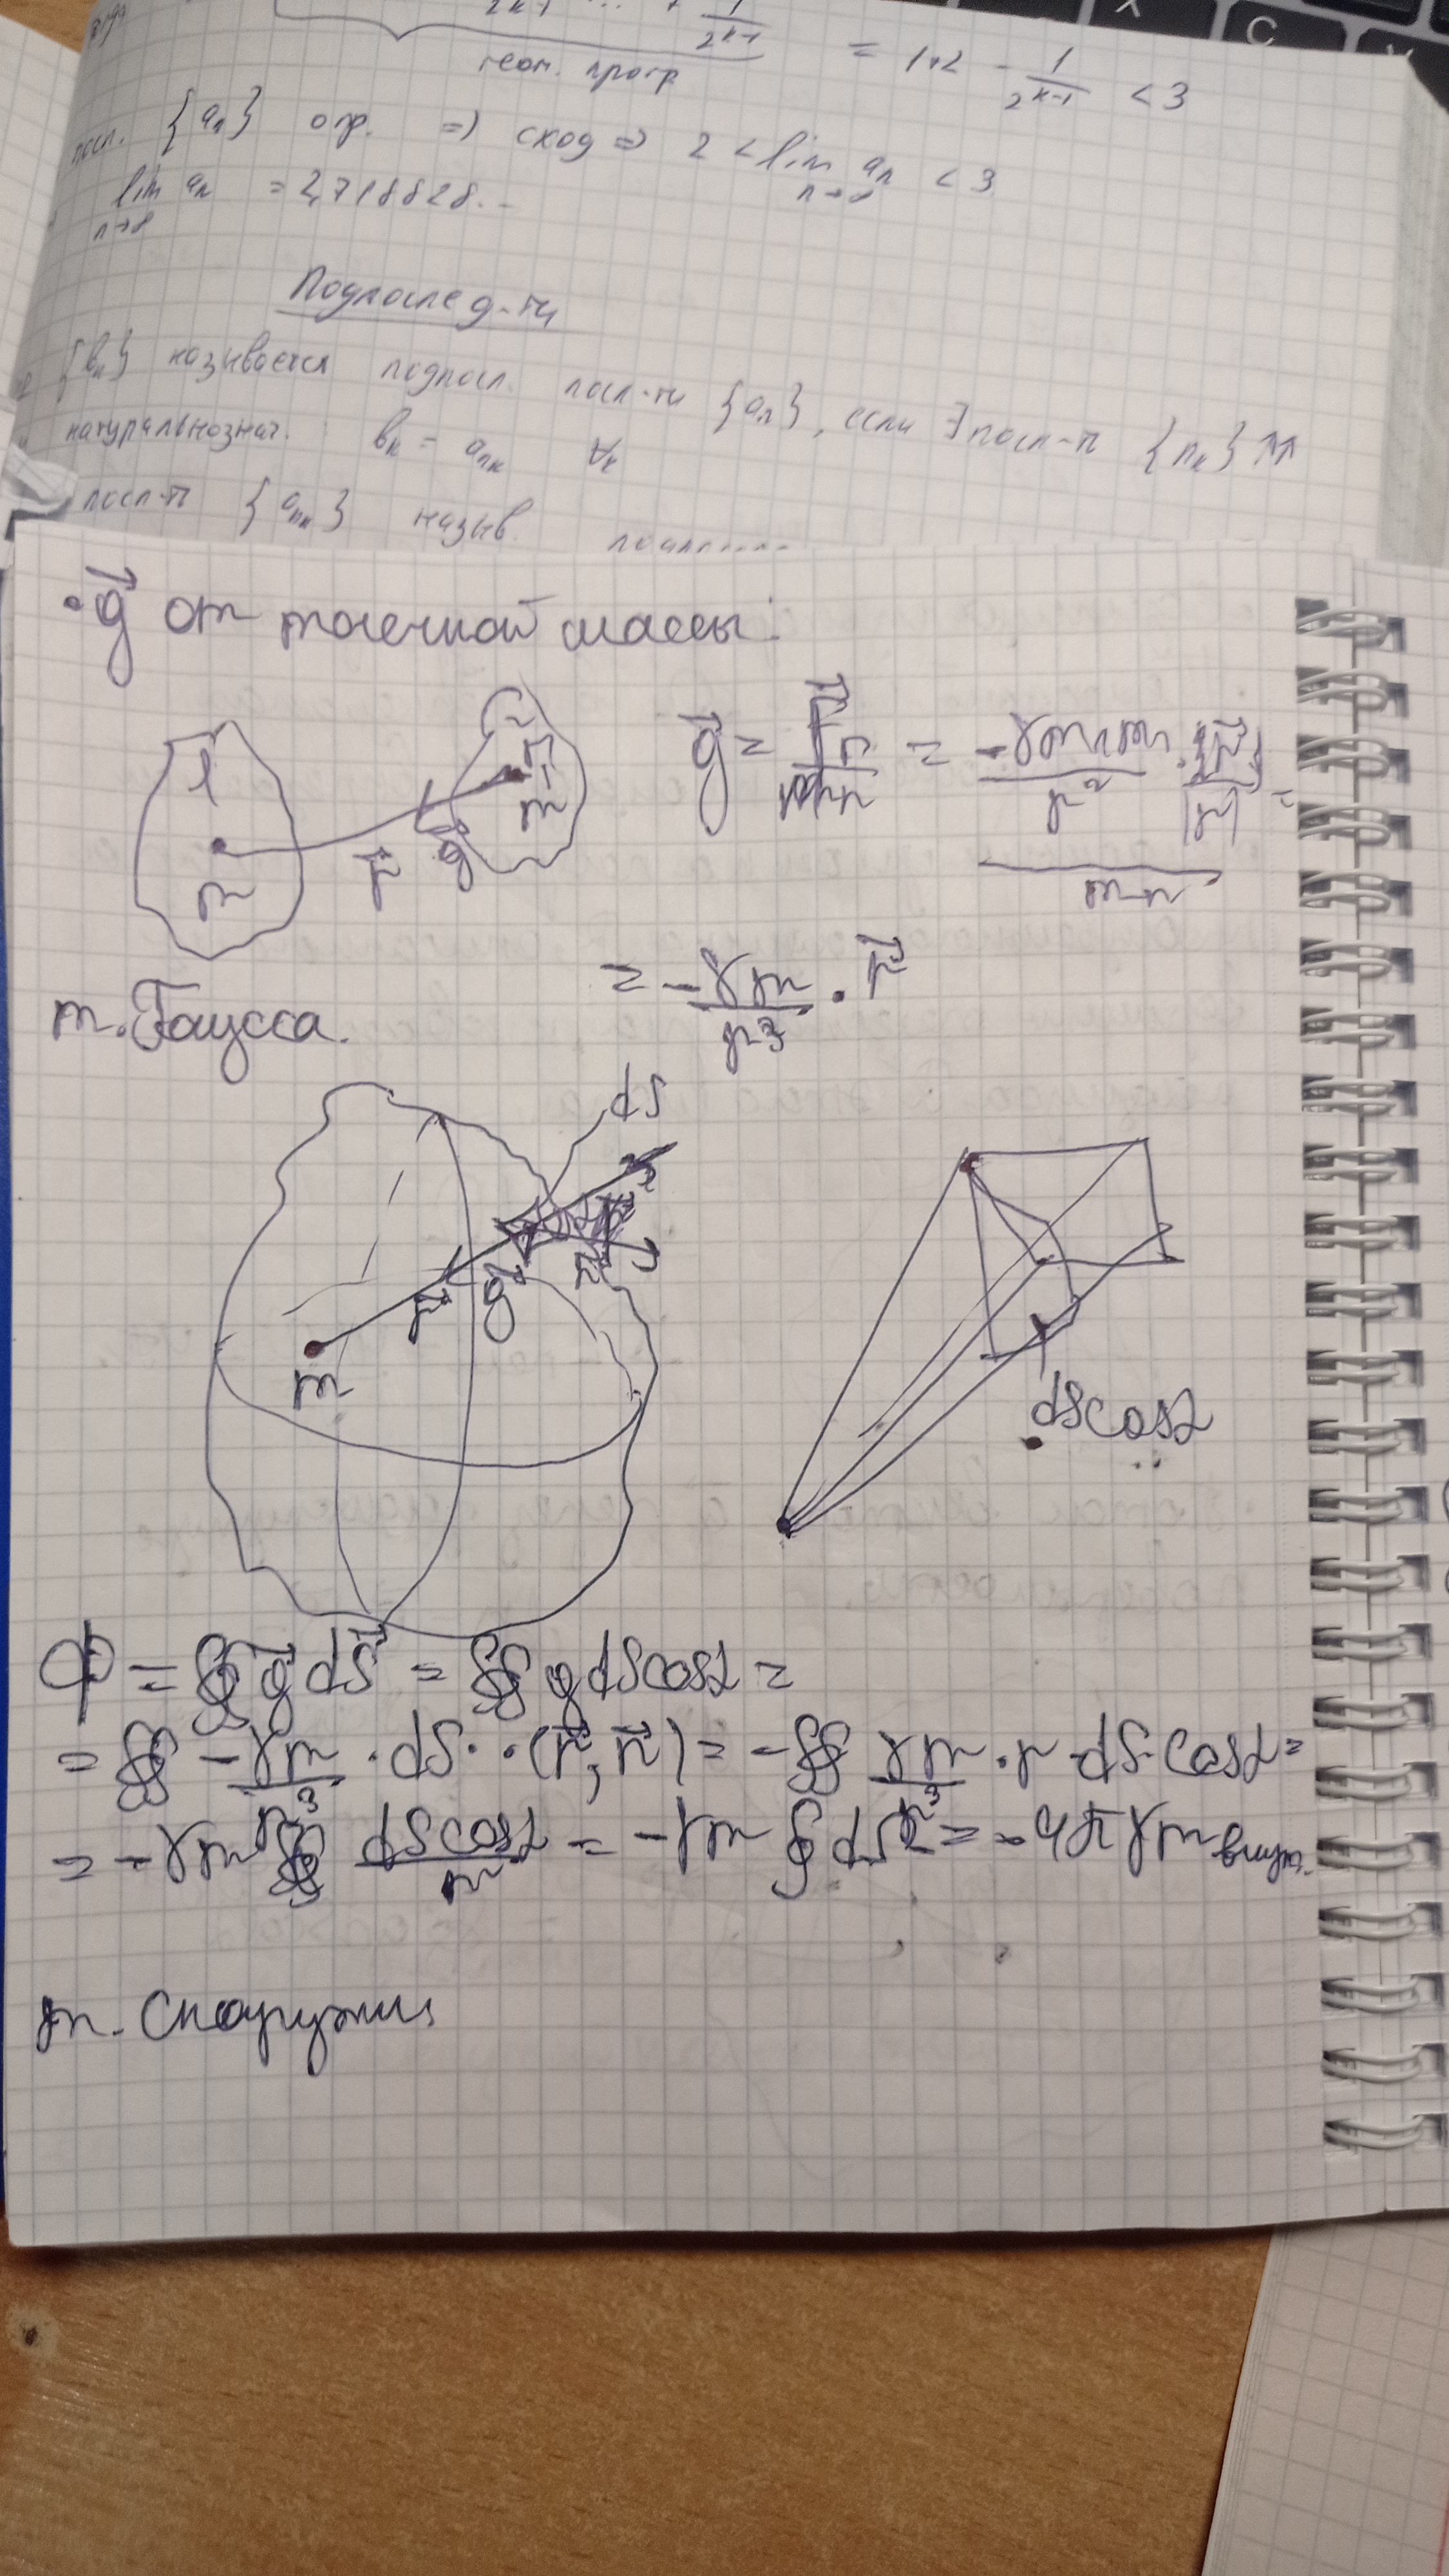 2k-1 ... + 1/2^{k-1} = 1+2 - 1/2^{k-1} < 3
геом. прогр
посл. {a_n} огр. => сход => 2 < lim_{n→∞} a_n < 3
lim_{n→∞} a_n = 2,718828...
Подпослед-ти
{b_k} называется подпосл. посл-ти {a_n}, если ∃ посл-ть {n_k} ↑↑
натуральнознач. : b_k = a_{n_k} ∀k
посл-ть {a_{n_k}} назыв.
• g⃗ от точечной массы:
1
m
r⃗
g⃗
m_п
g⃗ = F⃗_п/m_п = (-γ m m_п/r² · r⃗/|r|)/m_п =
= -γm/r³ · r⃗
т. Гаусса.
dS
r⃗
g⃗
n⃗
m
dScosα
Ф = ∯ g⃗ dS⃗ = ∯ g dS cosα =
= ∯ -γm/r³ · dS · · (r⃗, n⃗) = -∯ γm/r³ · r · dS · cosα =
= -γm ∯ dS cosα/r² = -γm ∮ dΩ = -4πγm внут.
m. снаружи